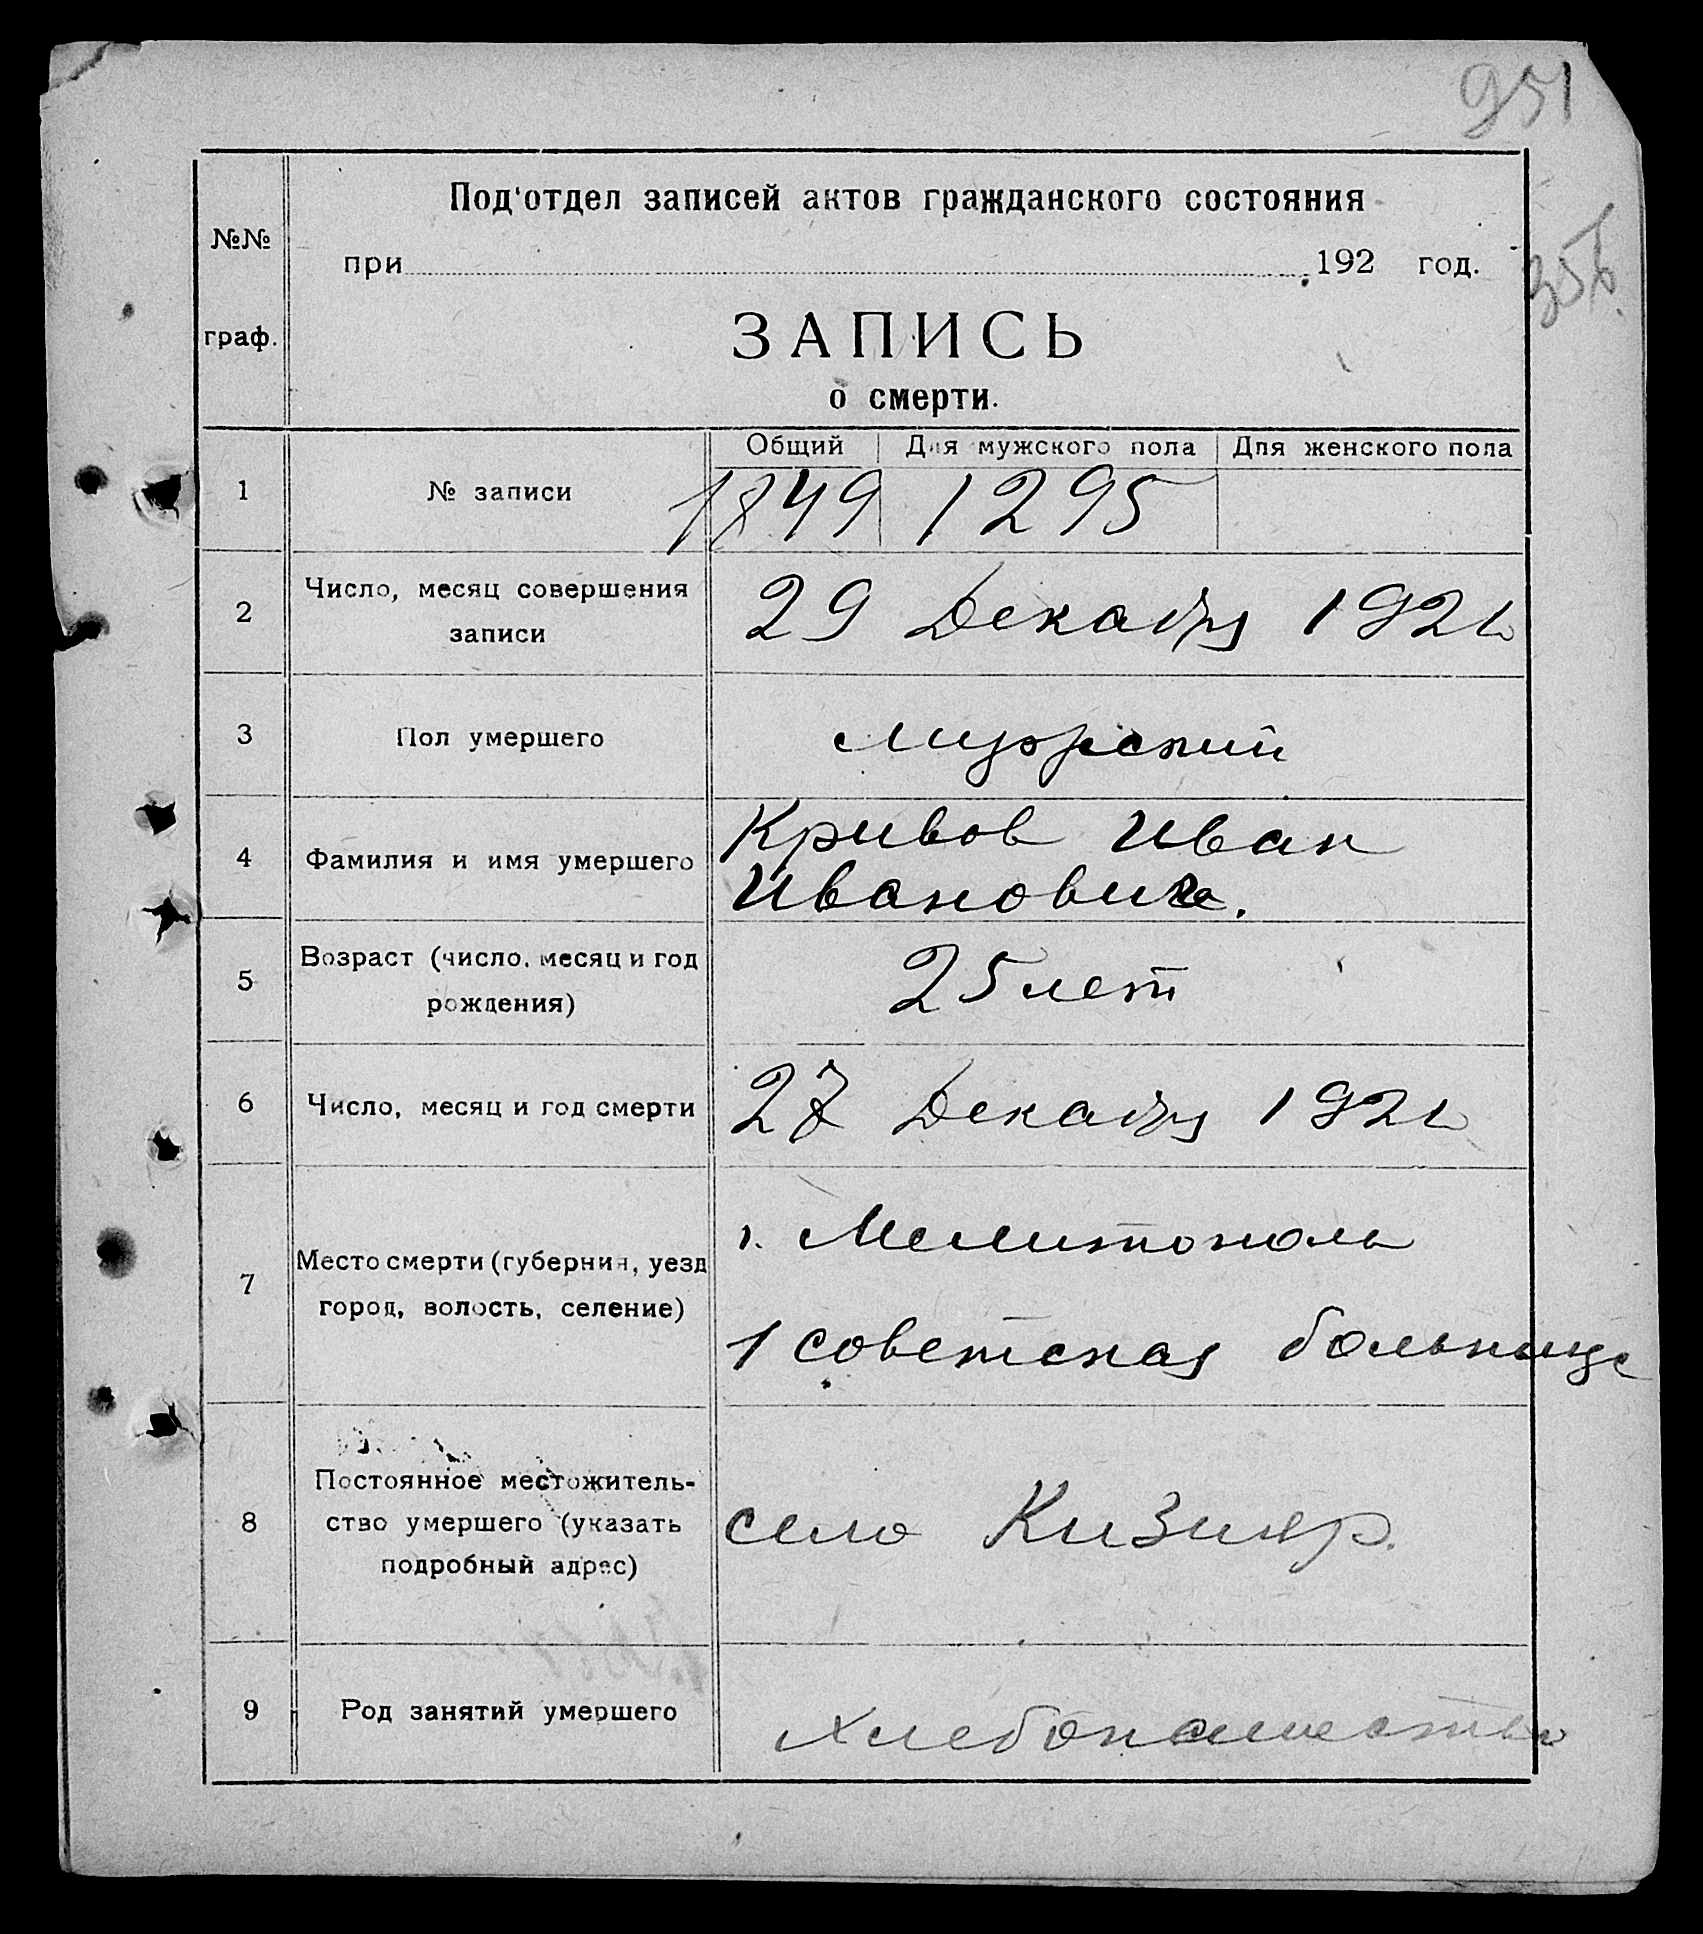 951
356
Под'отдел записей актов гражданского состояния
№№
при 192 год.
граф.
ЗАПИСЬ
о смерти.
Общий Для мужского пола Для женского пола
1 № записи 1849 1295
2 Число, месяц совершения
записи
29 Декабря 1921
3 Пол умершего Мужский
4 Фамилия и имя умершего
Кривов Иван
Иванович.
5 Возраст (число, месяц и год
рождения)
25 лет
6 Число, месяц и год смерти 27 Декабря 1921
7 Место смерти (губерния, уезд
город, волость, селение)
г. Мелитополь
1 советская больнице
8 Постоянное местожитель-
ство умершего (указать
подробный адрес)
село Кизияр.
9 Род занятий умершего хлебопашество